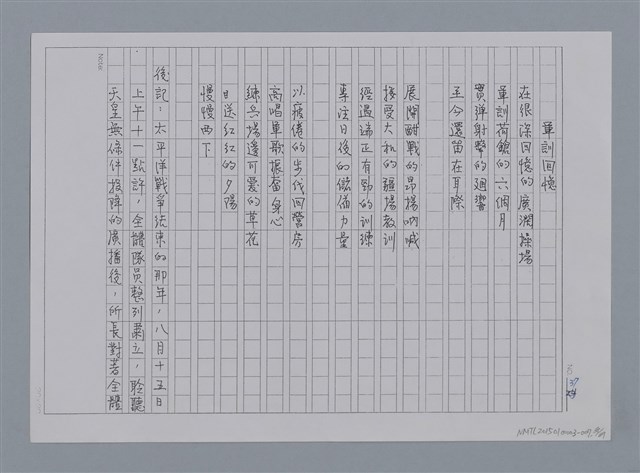 軍訓回憶
在很深回憶的廣濶操場
軍訓荷鎗的六個月
實彈射擊的廻響
至今還留在耳際
展開酣戰的昂揚吶喊
接受大和的疆場教訓
經過端正有勁的訓練
專注日後的儲備力量
以疲倦的步伐回營房
高唱軍歌振奮身心
練兵場邊可愛的草花
目送紅紅的夕陽
慢慢西下
後記：太平洋戰爭結束的那年，八月十五日
上午十一點許，全體隊員整列肅立，聆聽
天皇無條件投降的廣播後，所長對著全體
Note: